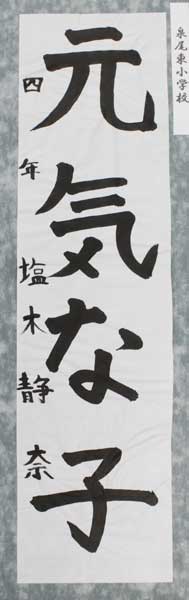 泉尾東小学校
元気な子
四年 塩木静奈